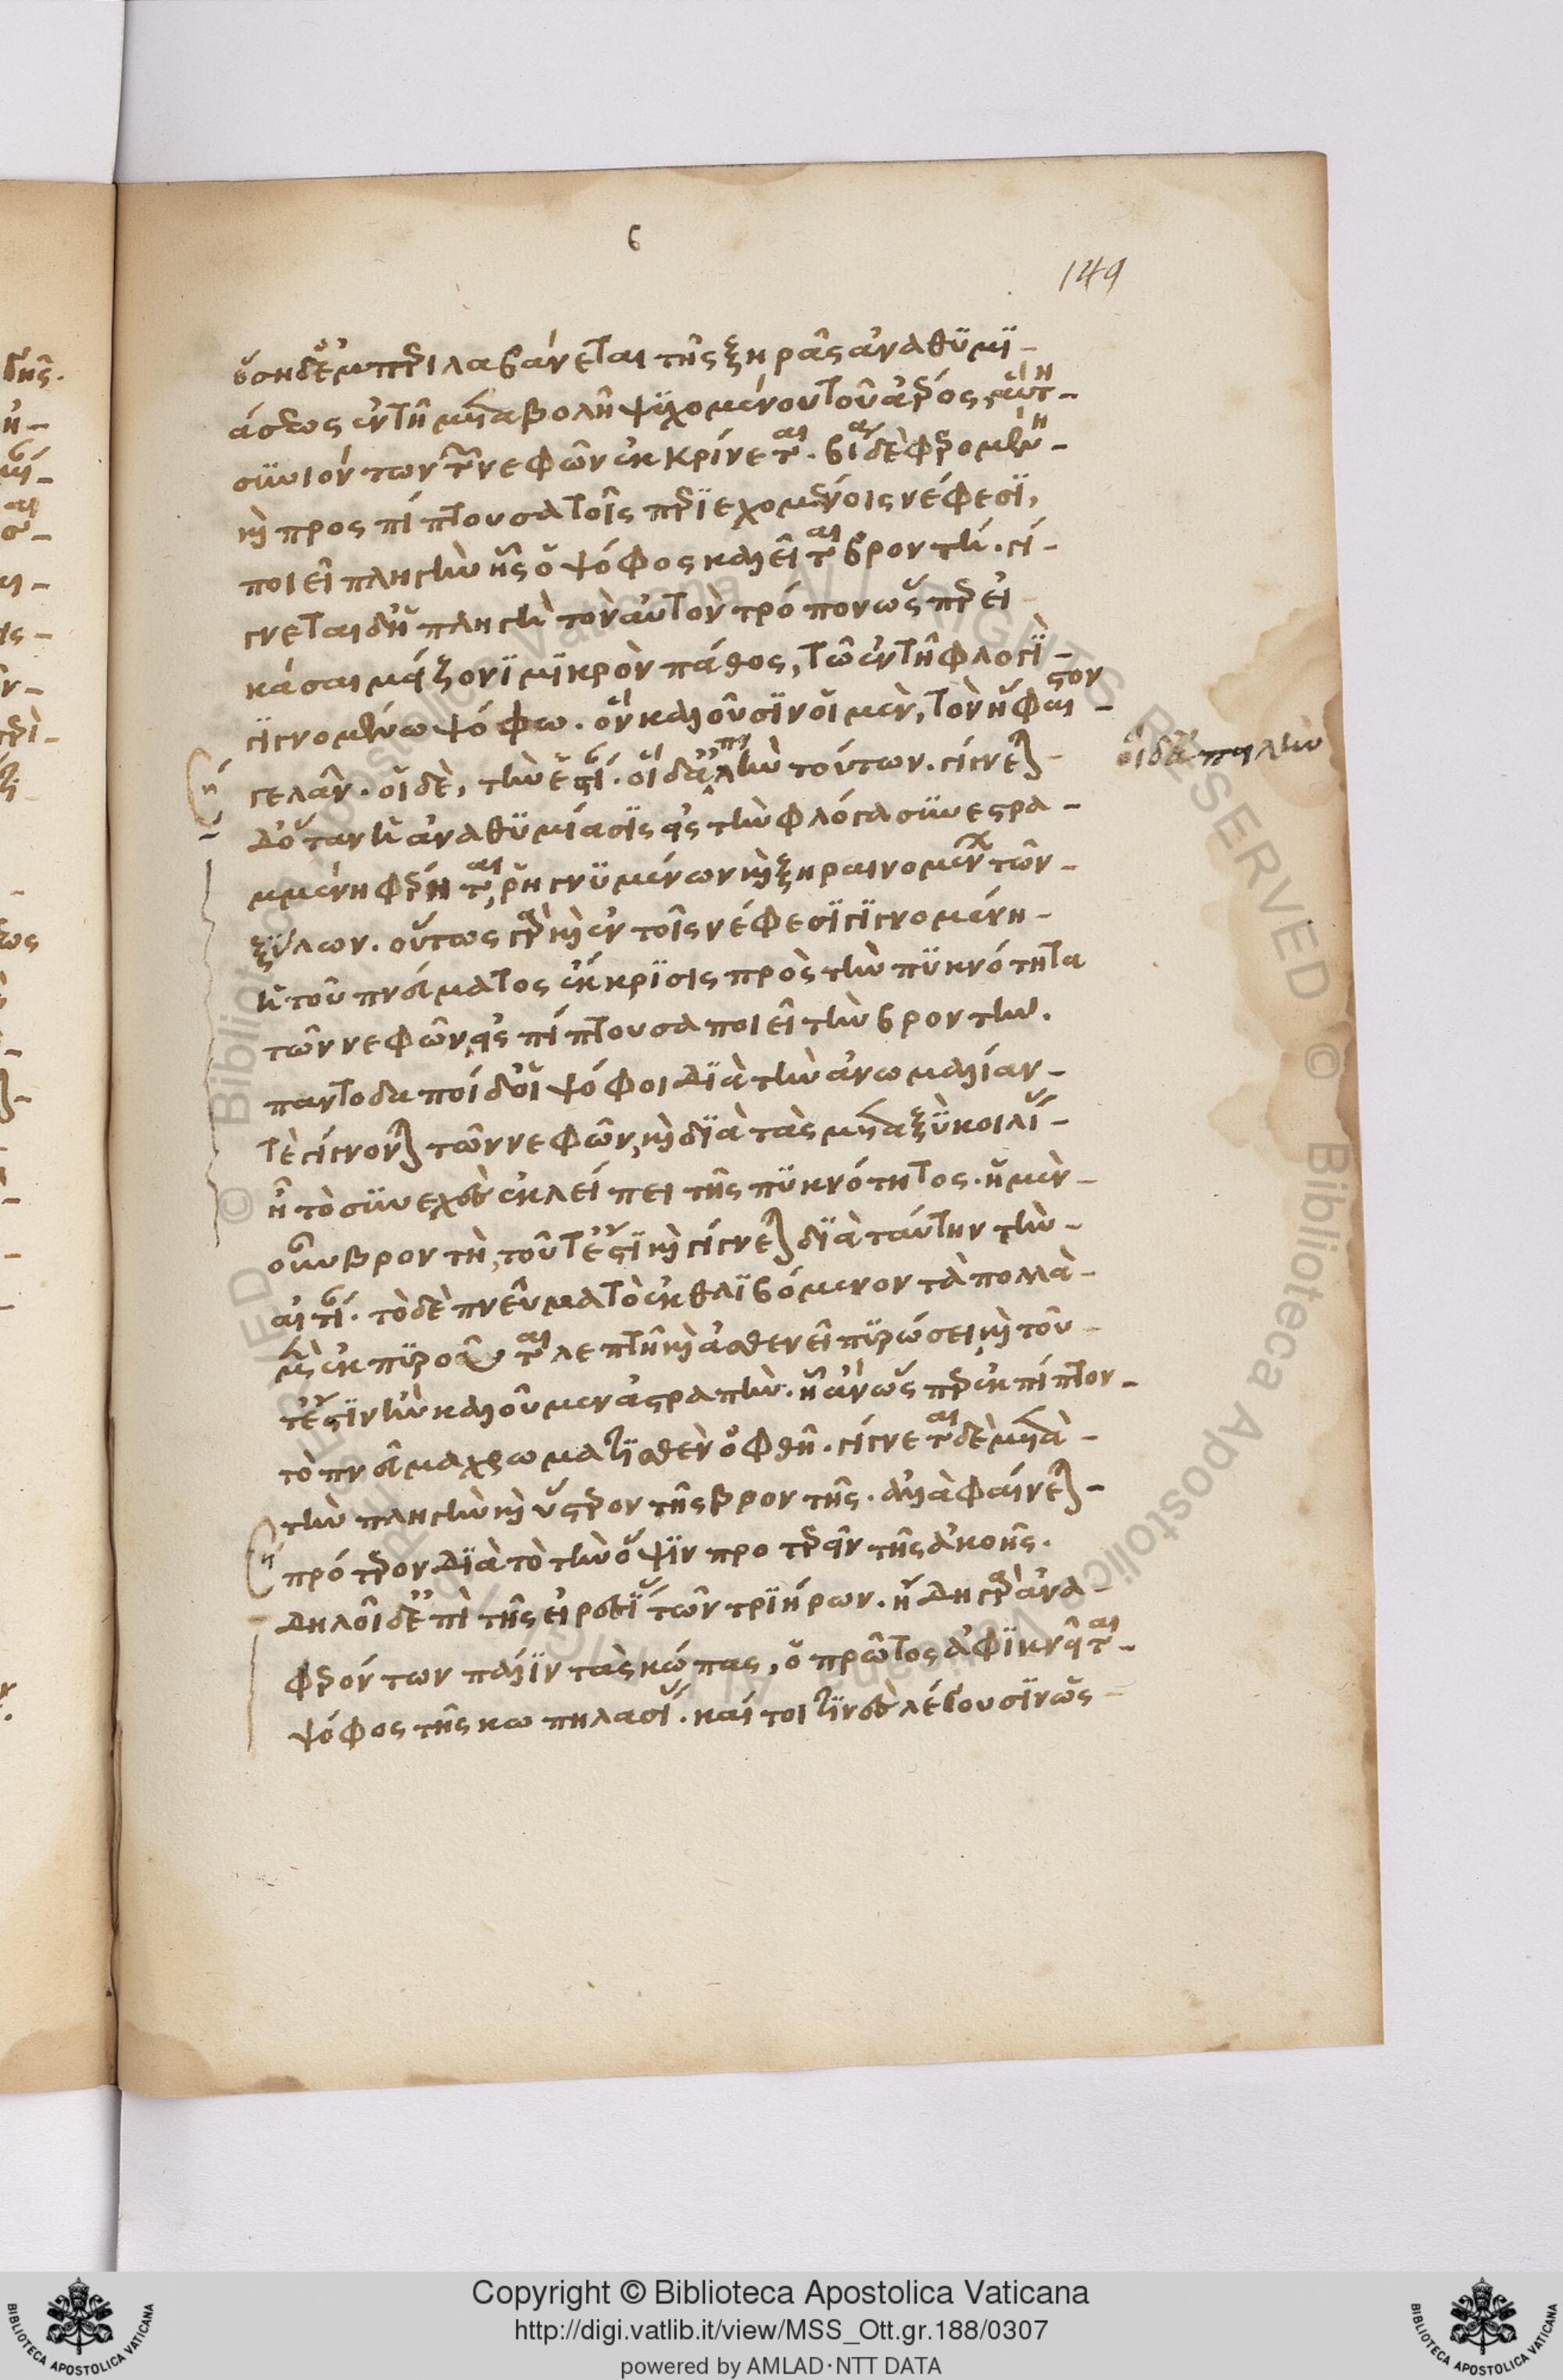 6
149
ὅση δ' ἐμπεριλαμβάνεται τῆς ξηρᾶς ἀναθυμι-
άσεως ἐν τῇ μεταβολῇ ψυχομένου τοῦ ἀέρος, αὕτη
συνιόντων τῶν νεφῶν ἐκκρίνεται. βίαι δὲ φερομένη
καὶ προσπίπτουσα τοῖς περιεχομένοις νέφεσι,
ποιεῖ πληγὴν ἧς ὁ ψόφος καλεῖται βροντή. γί-
γνεται δ' ἡ πληγὴ τὸν αὐτὸν τρόπον ὡς παρει
κάσαι μείζονι μικρὸν πάθος, τῶ ἐν τῇ φλογὶ
γιγνομένω ψόφω. ὃν καλοῦσιν οἱ μὲν, τὸν ἥφαιστον
γελᾶν. οἱ δὲ, τὴν ἑστίαν. οἱ δ' ἀπειλὴν τούτων. γίγνεται
οἱ δ' ἀπειλὴν
δ' ὅταν ἡ ἀναθυμίασις εἰς τὴν φλόγα συνεστρα-
μμένη φέρηται, ῥηγνυμένων καὶ ξηραινομένων τῶν
ξύλων. οὕτως γὰρ καὶ ἐν τοῖς νέφεσι γιγνομένη
ἡ τοῦ πνεύματος ἔκκρισις πρὸς τὴν πυκνότητα
τῶν νεφῶν, εἰσπίπτουσα ποιεῖ τὴν βροντήν.
παντοδαποὶ δ' οἱ ψόφοι διὰ τὴν ἀνωμαλίαν
τὲ γίγνονται τῶν νεφῶν, καὶ διὰ τὰς μεταξὺ κοιλίας
ἧ τὸ συνεχὲς ἐκλείπει τῆς πυκνότητος. ἡ μὲν
οὖν βροντὴ, τοῦτ' ἔστι καὶ γίγνεται διὰ ταύτην τὴν
αἰτίαν. τὸ δὲ πνεῦμα τὸ ἐκθλιβόμενον τὰ πολλὰ
μὲν ἐκπυροῦται λεπτῇ καὶ ἀσθενεῖ πυρώσει, καὶ τοῦ
τ' ἔστιν ἣν καλοῦμεν ἀστραπήν. ἧ ἂν ὥσπερ ἐκπίπτον
τὸ πνεῦμα χρωματισθὲν ὀφθῇ. γίγνεται δὲ μετὰ
τὴν πληγὴν καὶ ὕστερον τῆς βροντῆς. ἀλλὰ φαίνεται
πρότερον διὰ τὸ τὴν ὄψιν προτερεῖν τῆς ἀκοῆς.
δηλοῖ δ' ἐπὶ τῆς εἰρεσίας τῶν τριήρων. ἤδη γὰρ ἀνα
φερόντων πάλιν τὰς κώπας, ὁ πρῶτος ἀφικνεῖται
ψόφος τῆς κωπηλασίας. καίτοι τινὲς λέγουσιν ὡς
Copyright © Biblioteca Apostolica Vaticana
http://digi.vatlib.it/view/MSS_Ott.gr.188/0307
powered by AMLAD·NTT DATA